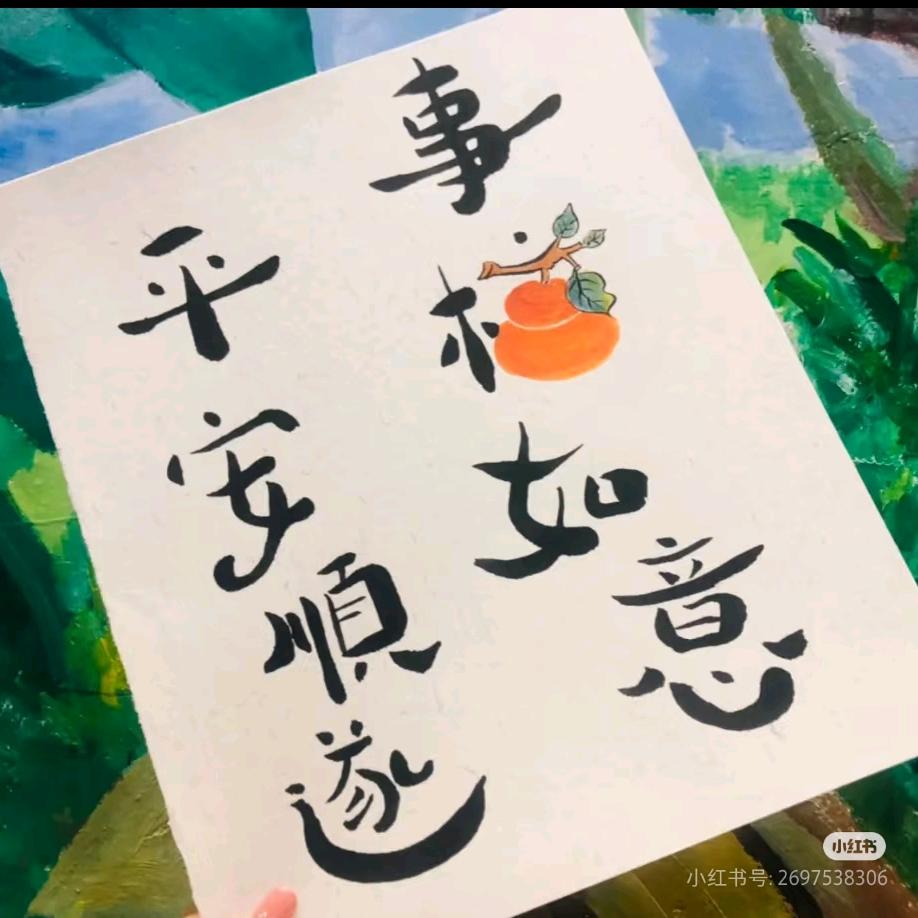 事柿如意
平安順遂
小红书
小红书号: 2697538306